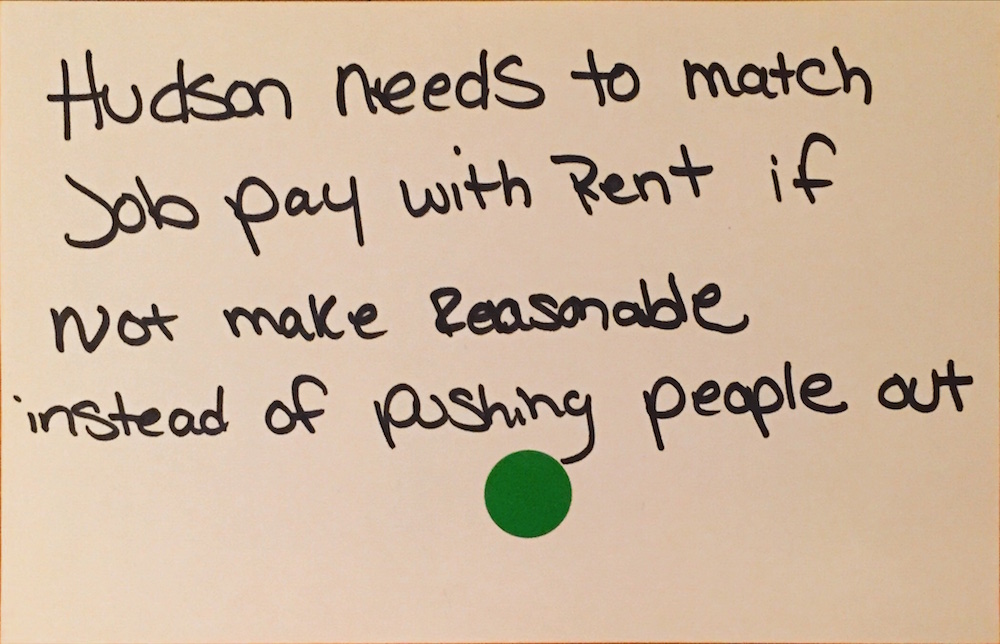 Hudson needs to match
Job pay with Rent if
Not make Reasonable
instead of pushing people out